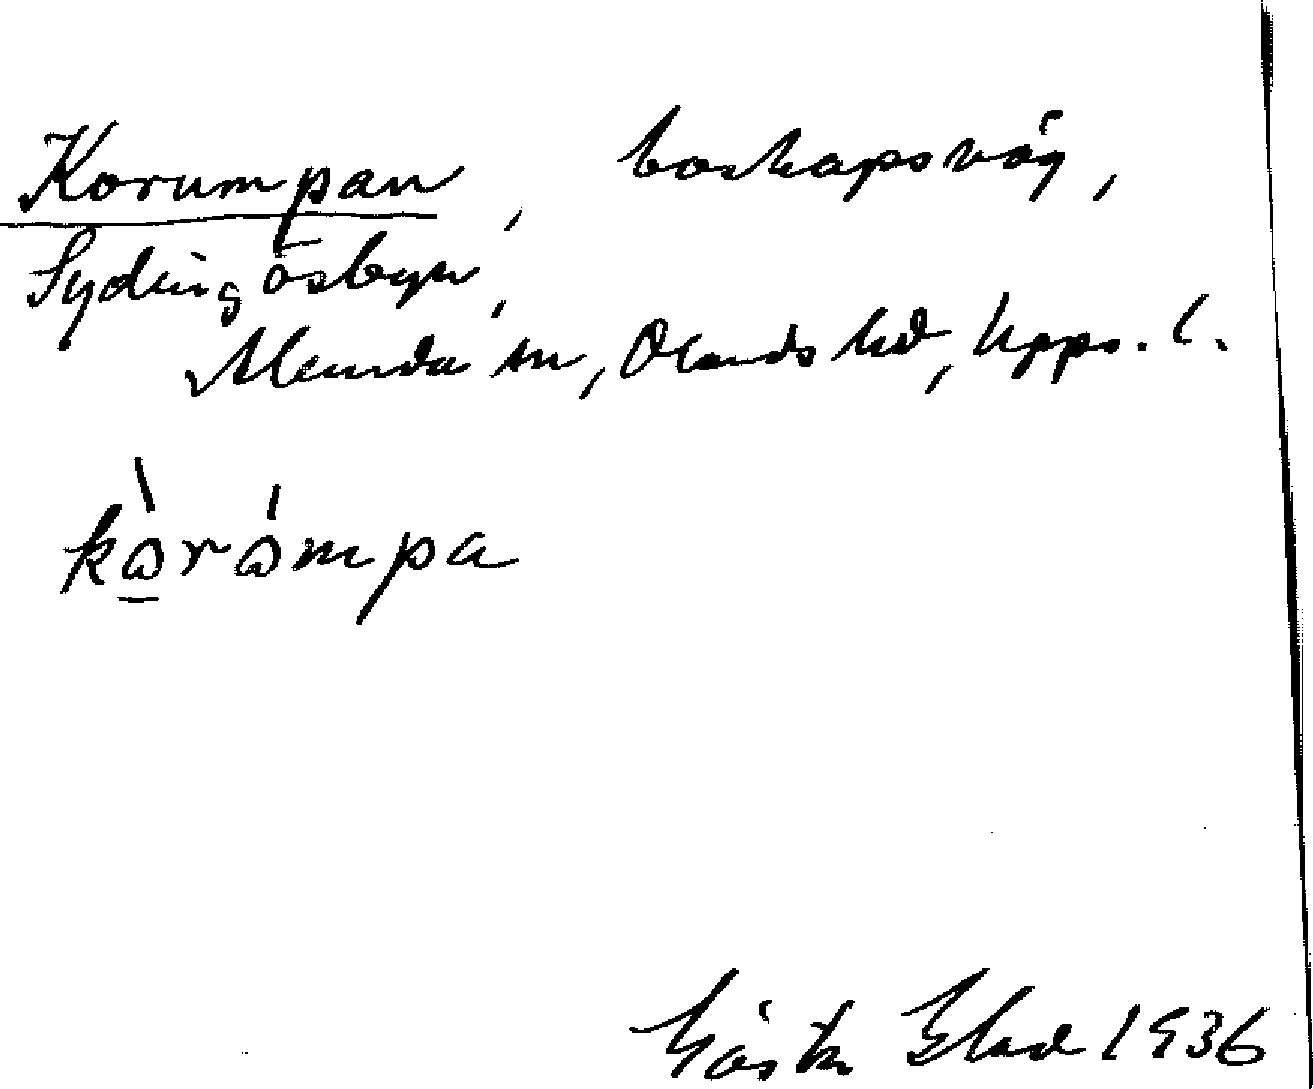 Korumpan, boskapsväg,
Sydingåsbyn,
Alunda sn, Olands hd, Upps. l.
kòrómpa
Gösta 1936